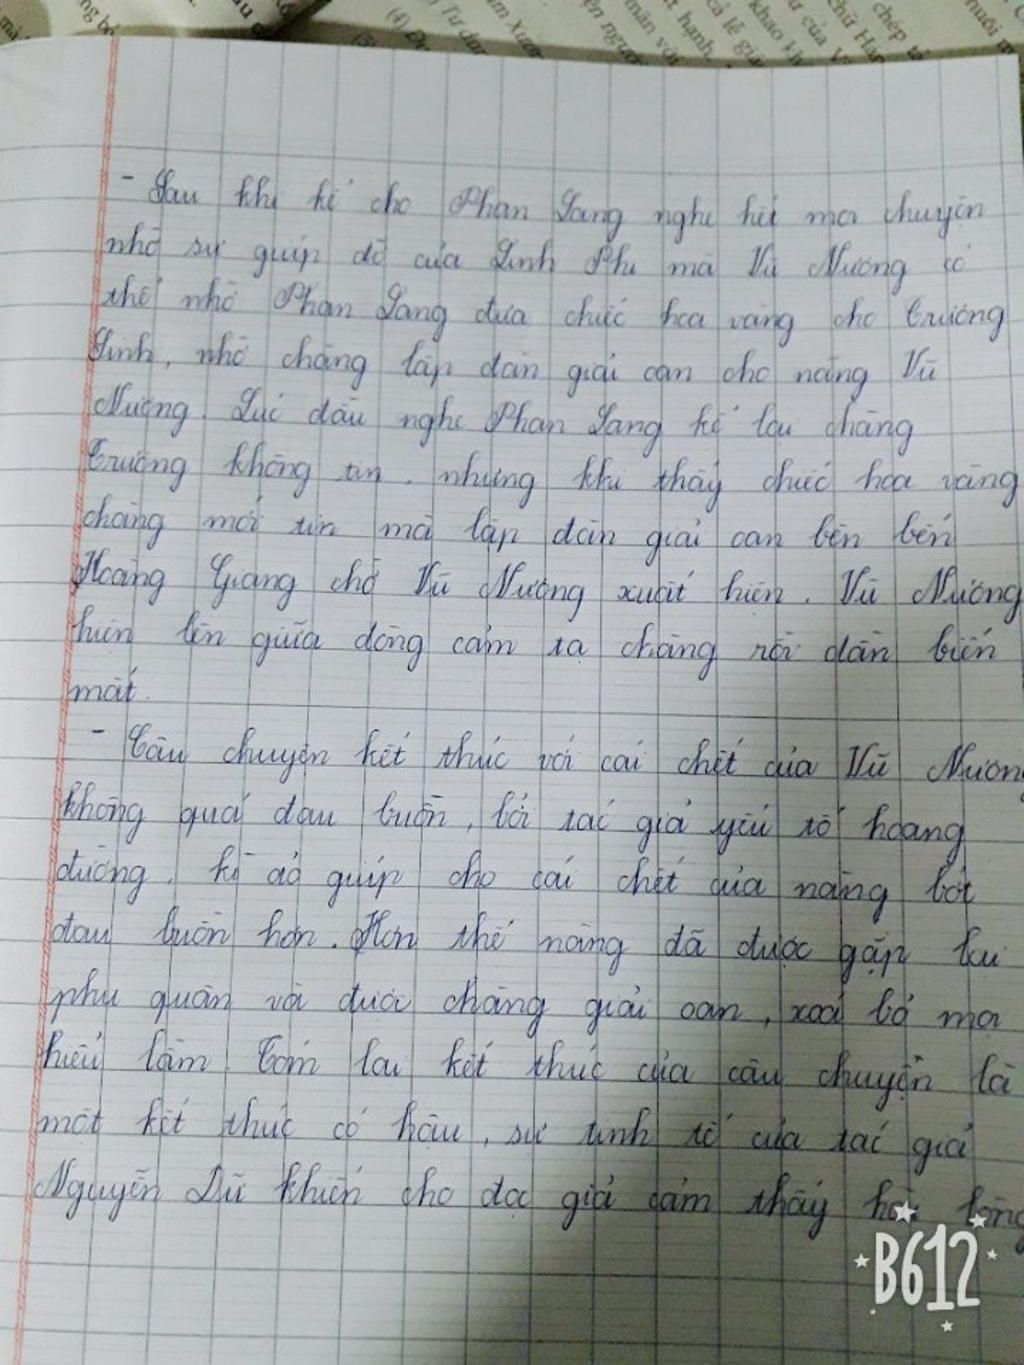 - Sau khi kể cho Phan Lang nghe hết mọi chuyện
nhờ sự giúp đỡ của Linh Phi mà Vũ Nương có
thể nhờ Phan Lang đưa chiếc hoa vàng cho Trương
Sinh, nhờ chàng lập đàn giải oan cho nàng Vũ
Nương. Lúc đầu nghe Phan Lang kể lại chàng
Trương không tin, nhưng khi thấy chiếc hoa vàng
chàng mới tin mà lập đàn giải oan bên bến
Hoàng Giang chờ Vũ Nương xuất hiện. Vũ Nương
hiện lên giữa dòng cảm tạ chàng rồi dần biến
mất.
- Câu chuyện kết thúc với cái chết của Vũ Nương
không quá đau buồn, bởi tác giả yếu tố hoang
đường, kì ảo giúp cho cái chết của nàng bớt
đau buồn hơn. Hơn thế nàng đã được gặp lại
phu quân và được chàng giải oan, xoá bỏ mọi
hiểu lầm. Tóm lại kết thúc của câu chuyện là
một kết thúc có hậu, sự tinh tế của tác giả
Nguyễn Dữ khiến cho đọc giả cảm thấy hài lòng
B612